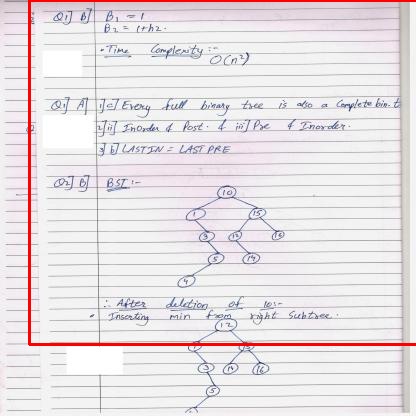 Q1] B] B1 = 1
B2 = 1+h2.
• Time Complexity :-
O(n²)
Q1] A] 1] c] Every full binary tree is also a Complete bin. t
2] ii] Inorder & Post. & iii] Pre & Inorder.
3] b] LASTIN = LASTPRE
Q2] B] BST :-
10
1 15
3 12
5 14
4
∴ After deletion of 10:-
• Inserting min from right Subtree.
12
1
3 14 16
5